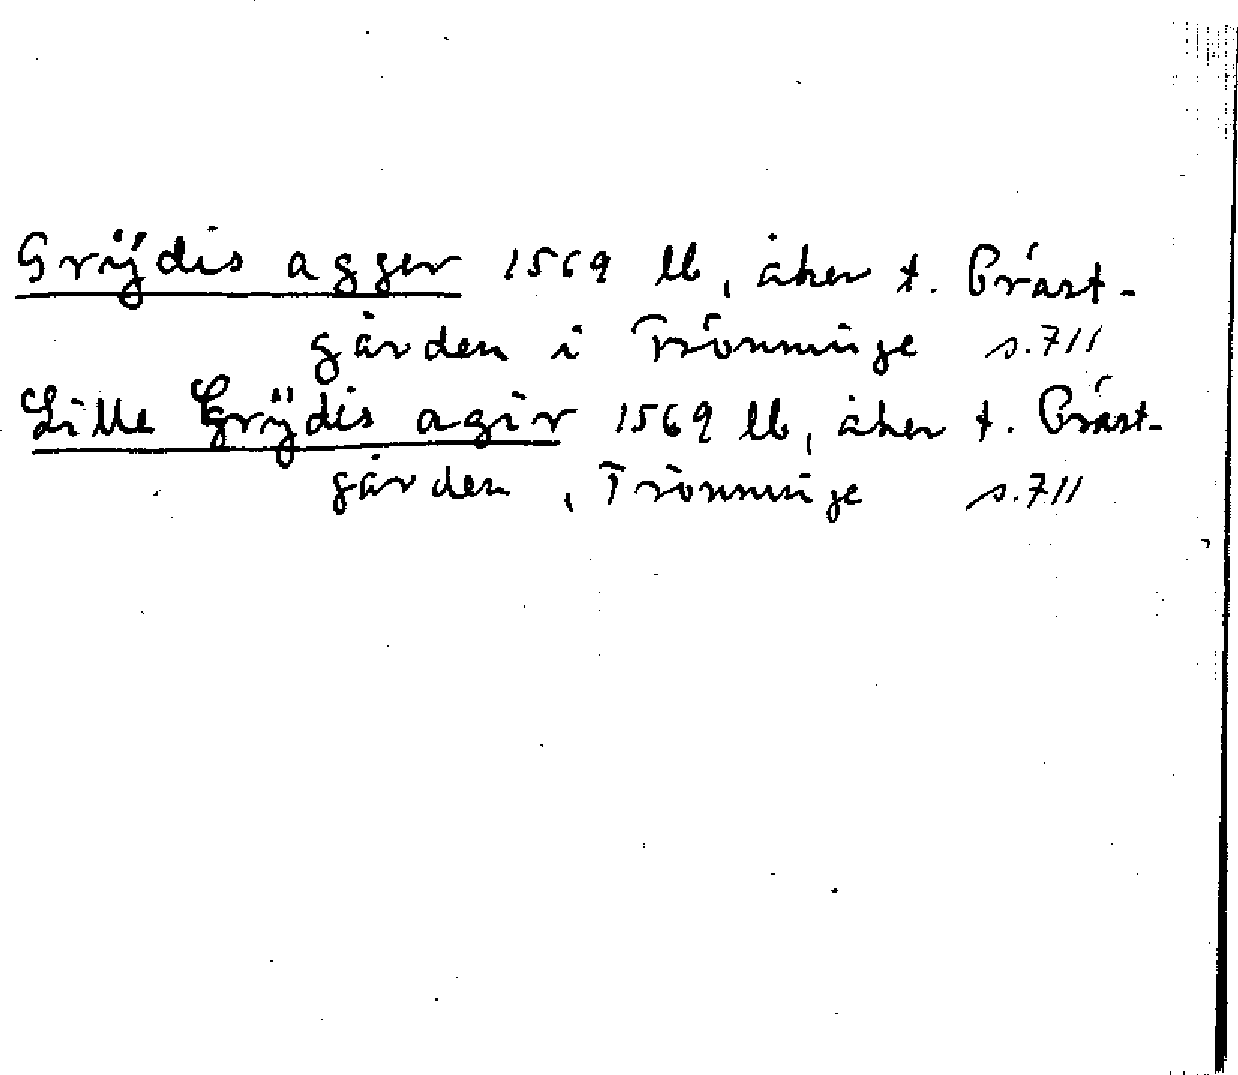 Grÿdis agger 1569 lb, åker t. Präst-
gården i Trönninge s. 711
Lille Grÿdis agir 1569 lb, åker t. Präst-
gården, Trönninge s. 711